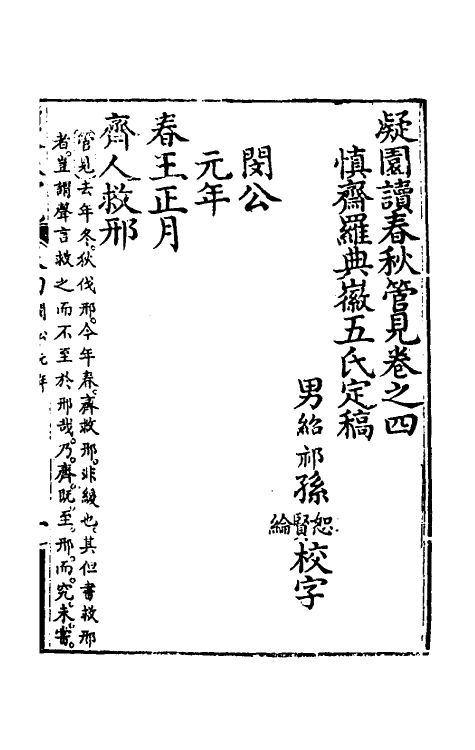 凝園讀春秋管見卷之四
慎齋羅典徽五氏定稿
男紹祁孫恕賢綸校字
閔公
元年
春王正月
齊人救邢
管見去年冬狄伐邢今年春齊救邢非緩也其但書救邢
者豈謂聲言救之而不至於邢哉乃齊既至邢而究未嘗